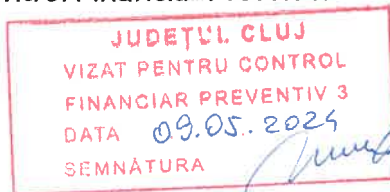 JUDEȚUL CLUJ
VIZAT PENTRU CONTROL
FINANCIAR PREVENTIV 3
DATA 09.05.2024
SEMNĂTURA